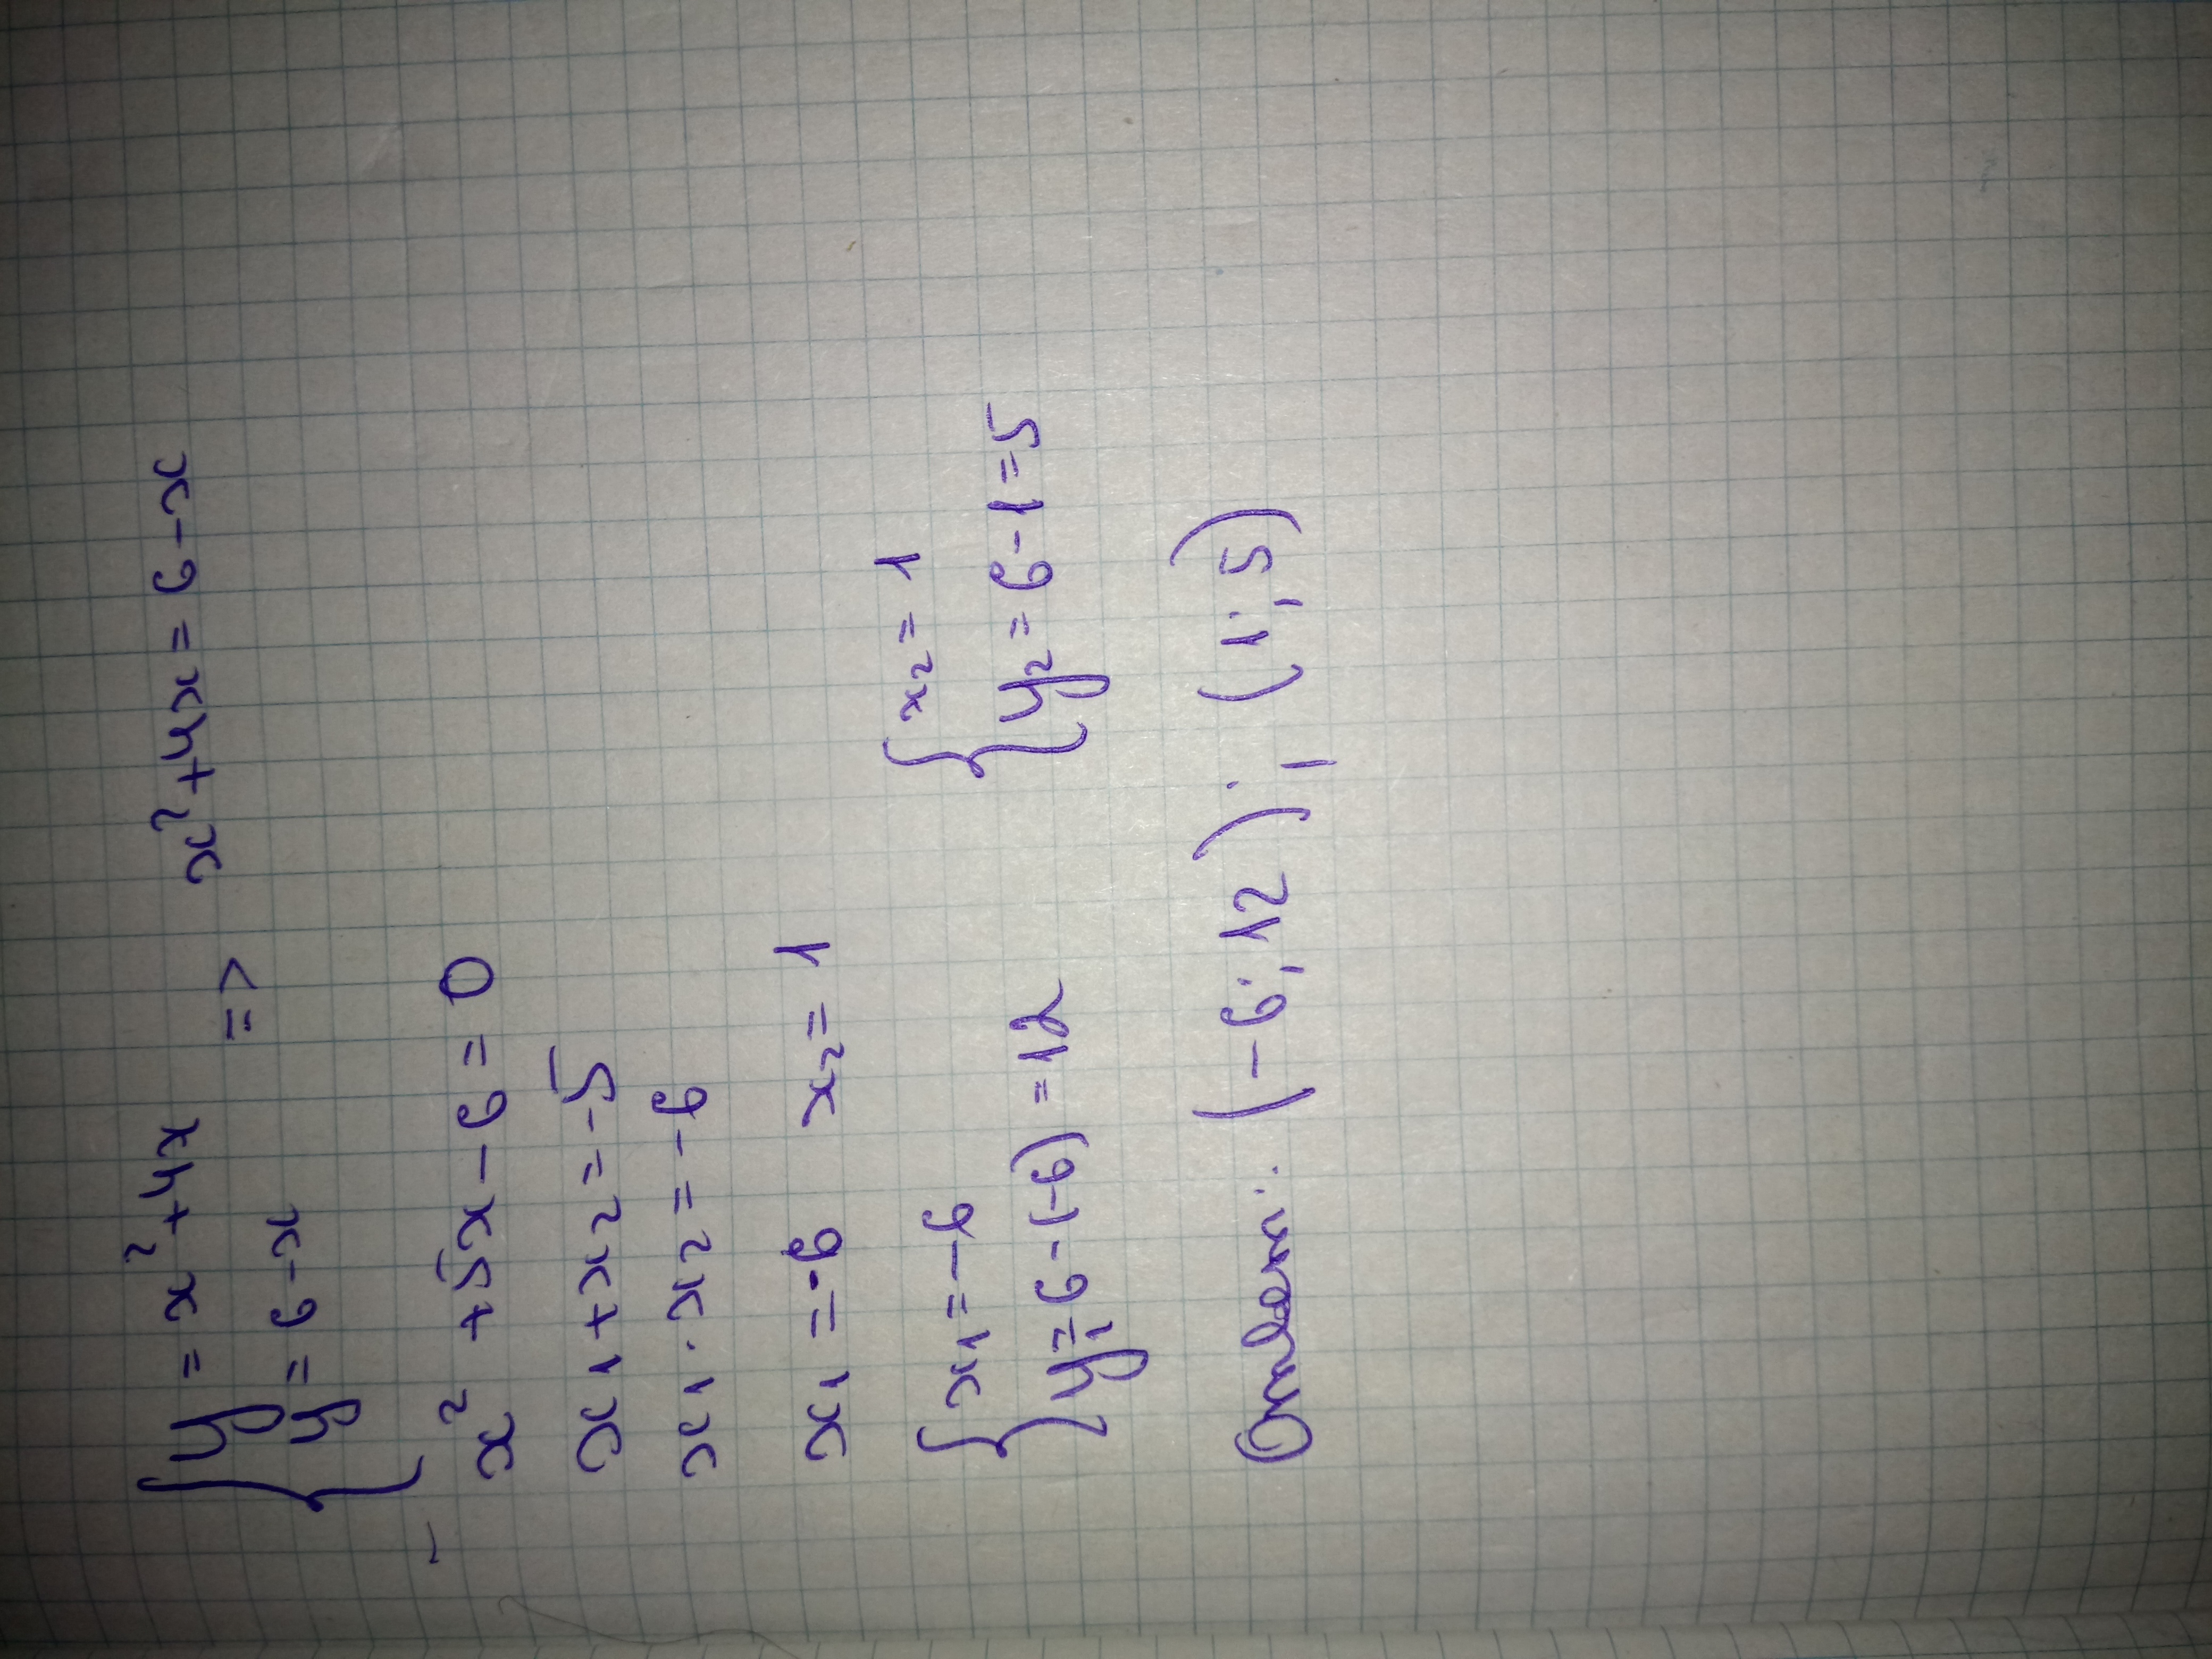 { y = x² + 4x => x² + 4x = 6 - x
{ y = 6 - x
x² + 5x - 6 = 0
x1 + x2 = -5
x1 · x2 = -6
x1 = -6 x2 = 1
{ x1 = -6 { x2 = 1
{ y1 = 6 - (-6) = 12 { y2 = 6 - 1 = 5
Ответ: (-6; 12); (1; 5)